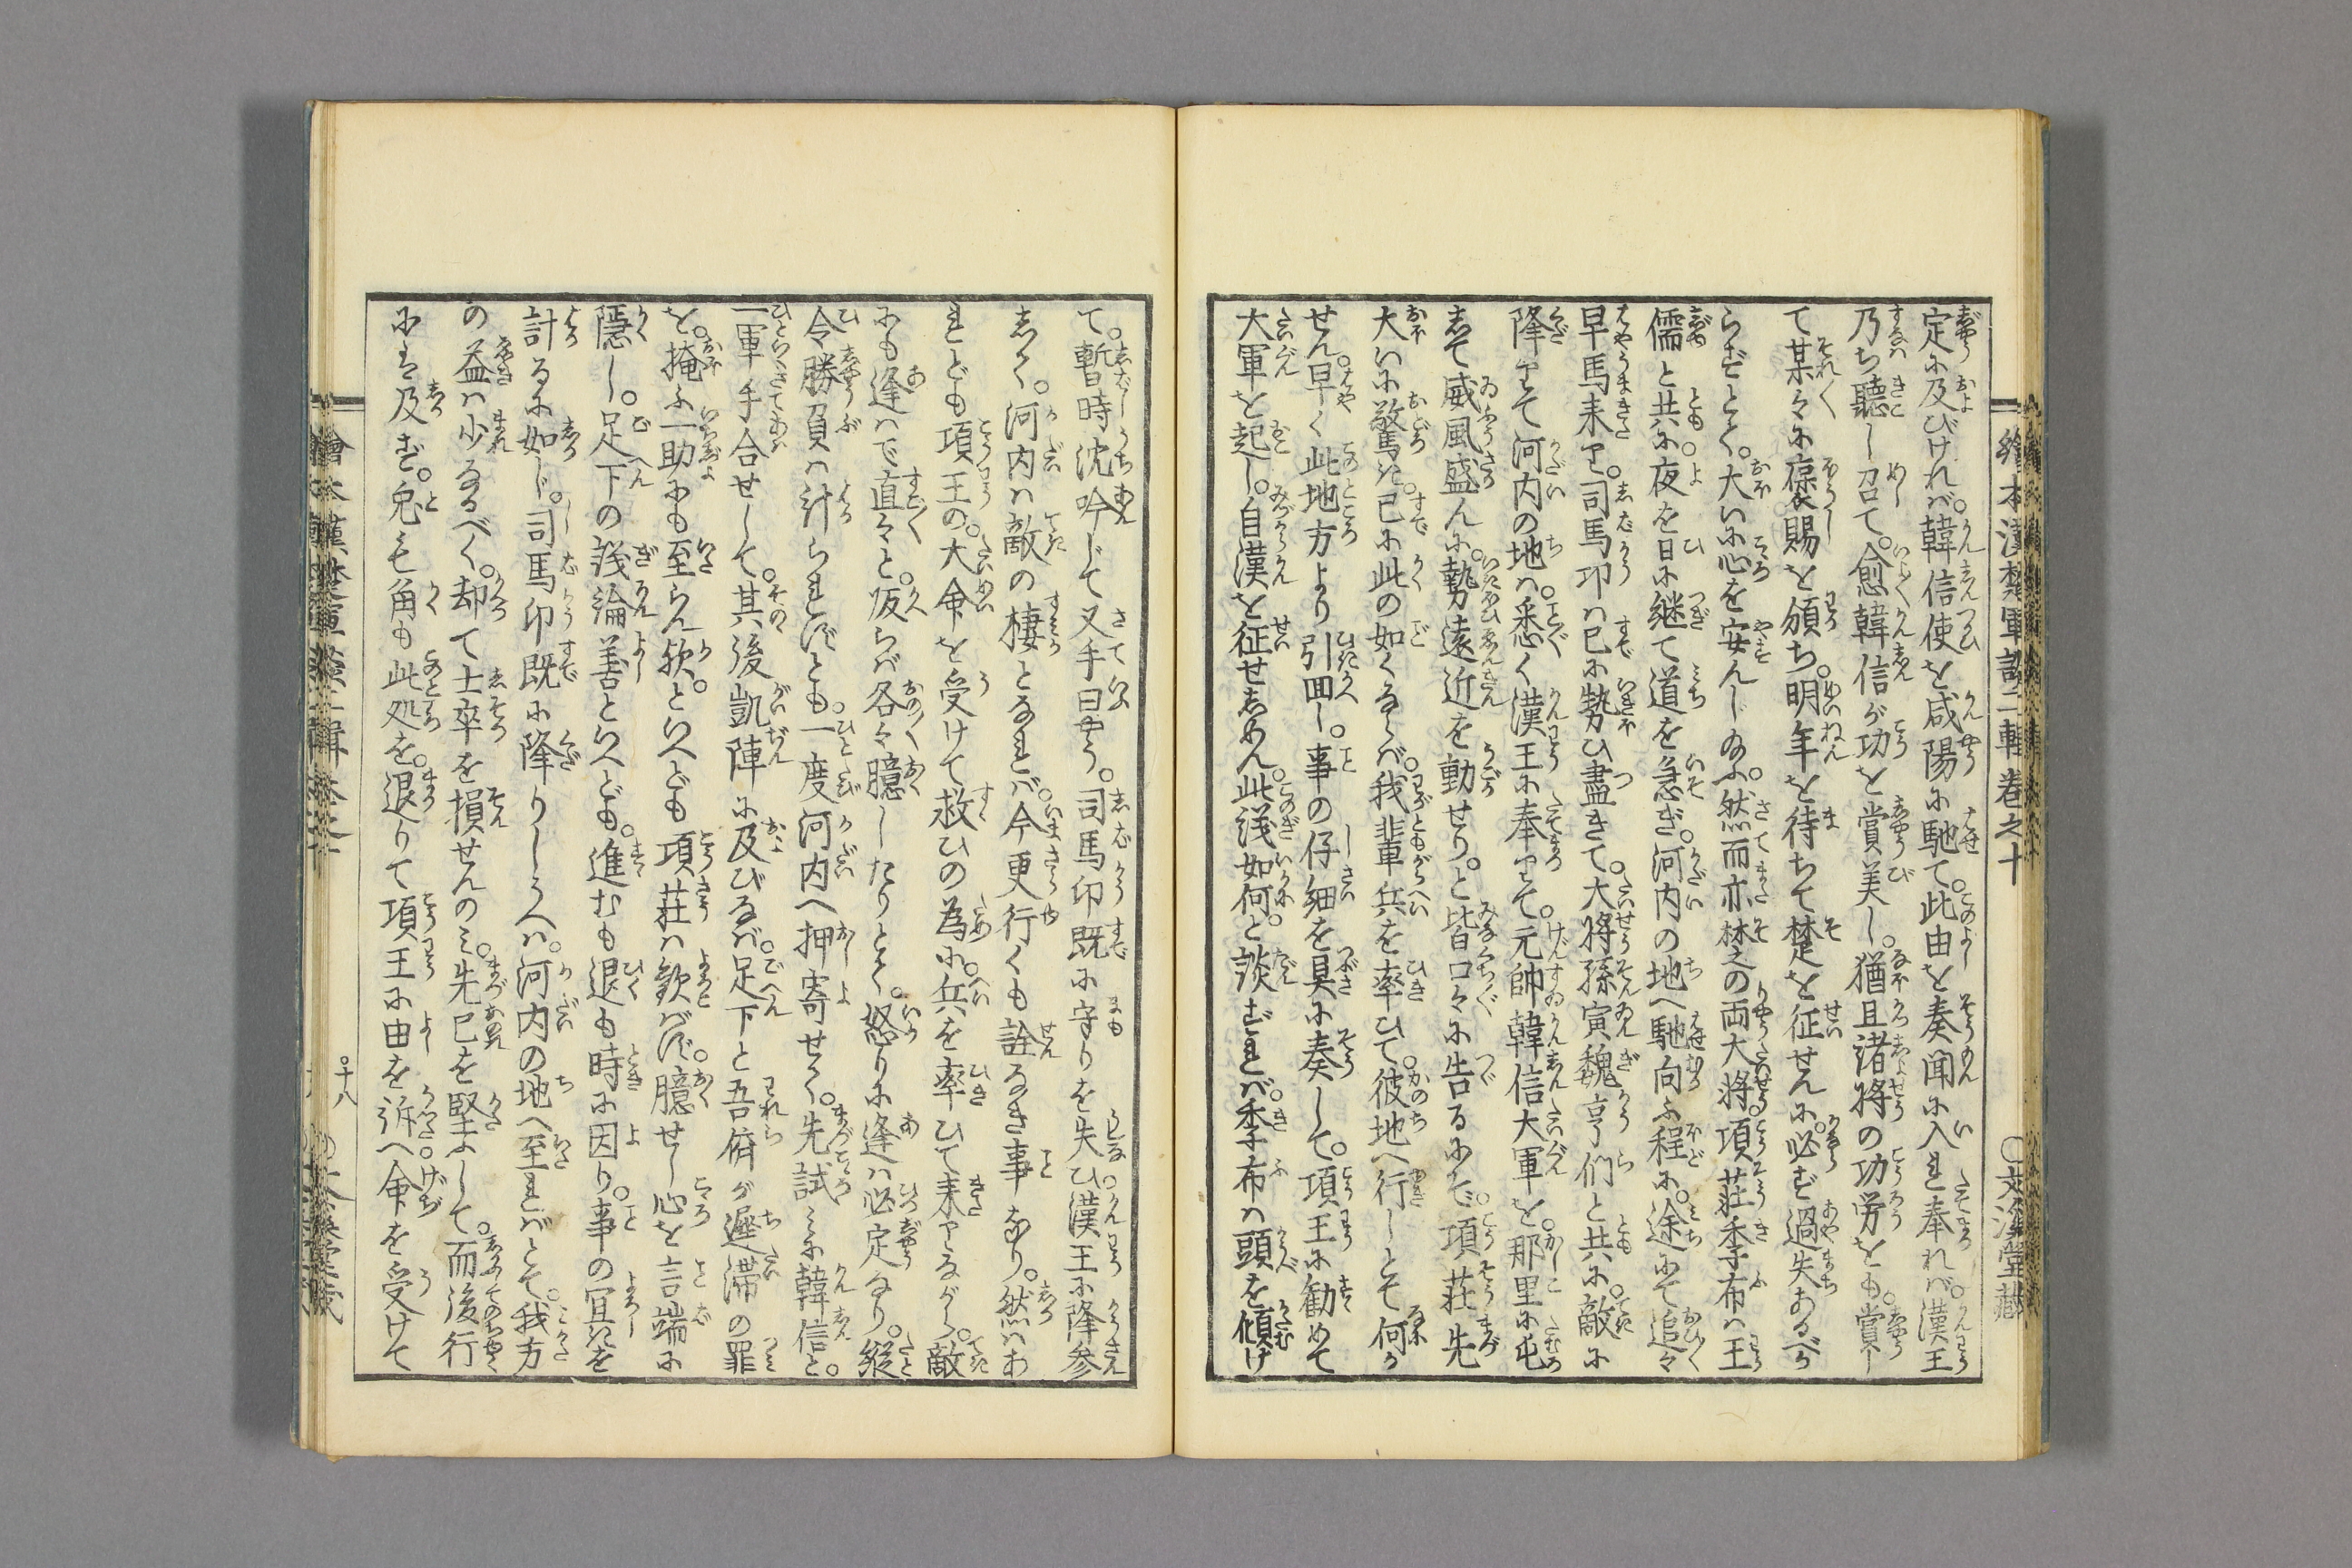 定に及びければ。韓信使を咸陽に馳て。此由を奏聞に入れ奉れば。漢王
乃ち聽し召て。愈韓信が功を賞美し。猶且諸將の功労をも。賞し
て某々に褒賜を頒ち。明年を待ちて楚を征せんに。必ず過失あるべか
らずとて。大いに心を安んじ給ふ。然而亦楚の両大將。項莊季布は王
儒と共に。夜を日に継て道を急ぎ。河内の地へ馳向ふ程に。途にて追々
早馬来り。司馬卬は已に勢ひ盡きて。大將孫寅魏亨们と共に。敵に
降りて河内の地は。悉く漢王に奉りて。元帥韓信大軍を。那里に屯
して威風盛んに。勢遠近を動せり。と皆口々に告るにぞ。項莊先
大いに驚き。已に此の如くならば。我輩兵を率ひて。彼地へ行しとて何か
せん。早く此地方より引囬し。事の仔細を具に奏して。項王に勧めて
大軍を起し。自漢を征せしめん。此議如何。と談ずれば。季布は頭を傾け
繪本漢楚軍談二輯卷之十
〇文溪堂藏
て。暫時沈吟じて叉手曰やう。司馬卬既に守りを失ひ。漢王に降参
しく。河内は敵の棲となれば。今更行くも詮なき事なり。然はあ
れども項王の。大命を受けて救ひの為に。兵を率ひて来りながら。敵
にも逢はで直々と。皈らば各々臆したりとて。怒りに逢は必定なり。縦
令勝負は計られずとも。一度河内へ押寄せて。先試みに韓信と。
一軍手合せして。其後凱陣に及びなば。足下と吾儕が遲滞の罪
を。掩ふ一助にも至らん歟。といへども項莊は歓ばず。臆せし心を言端に
隠し。足下の議論善といへども。進むも退も時に因り。事の宜きを
計るに如じ。司馬卬既に降りしうへは。河内の地へ至ればとて。我方
の益は少なるべく。却て士卒を損せんのみ。先己を堅ふして。而後行
には及ず。兎も角も此処を。退りて項王に由を訴へ。命を受けて
十八